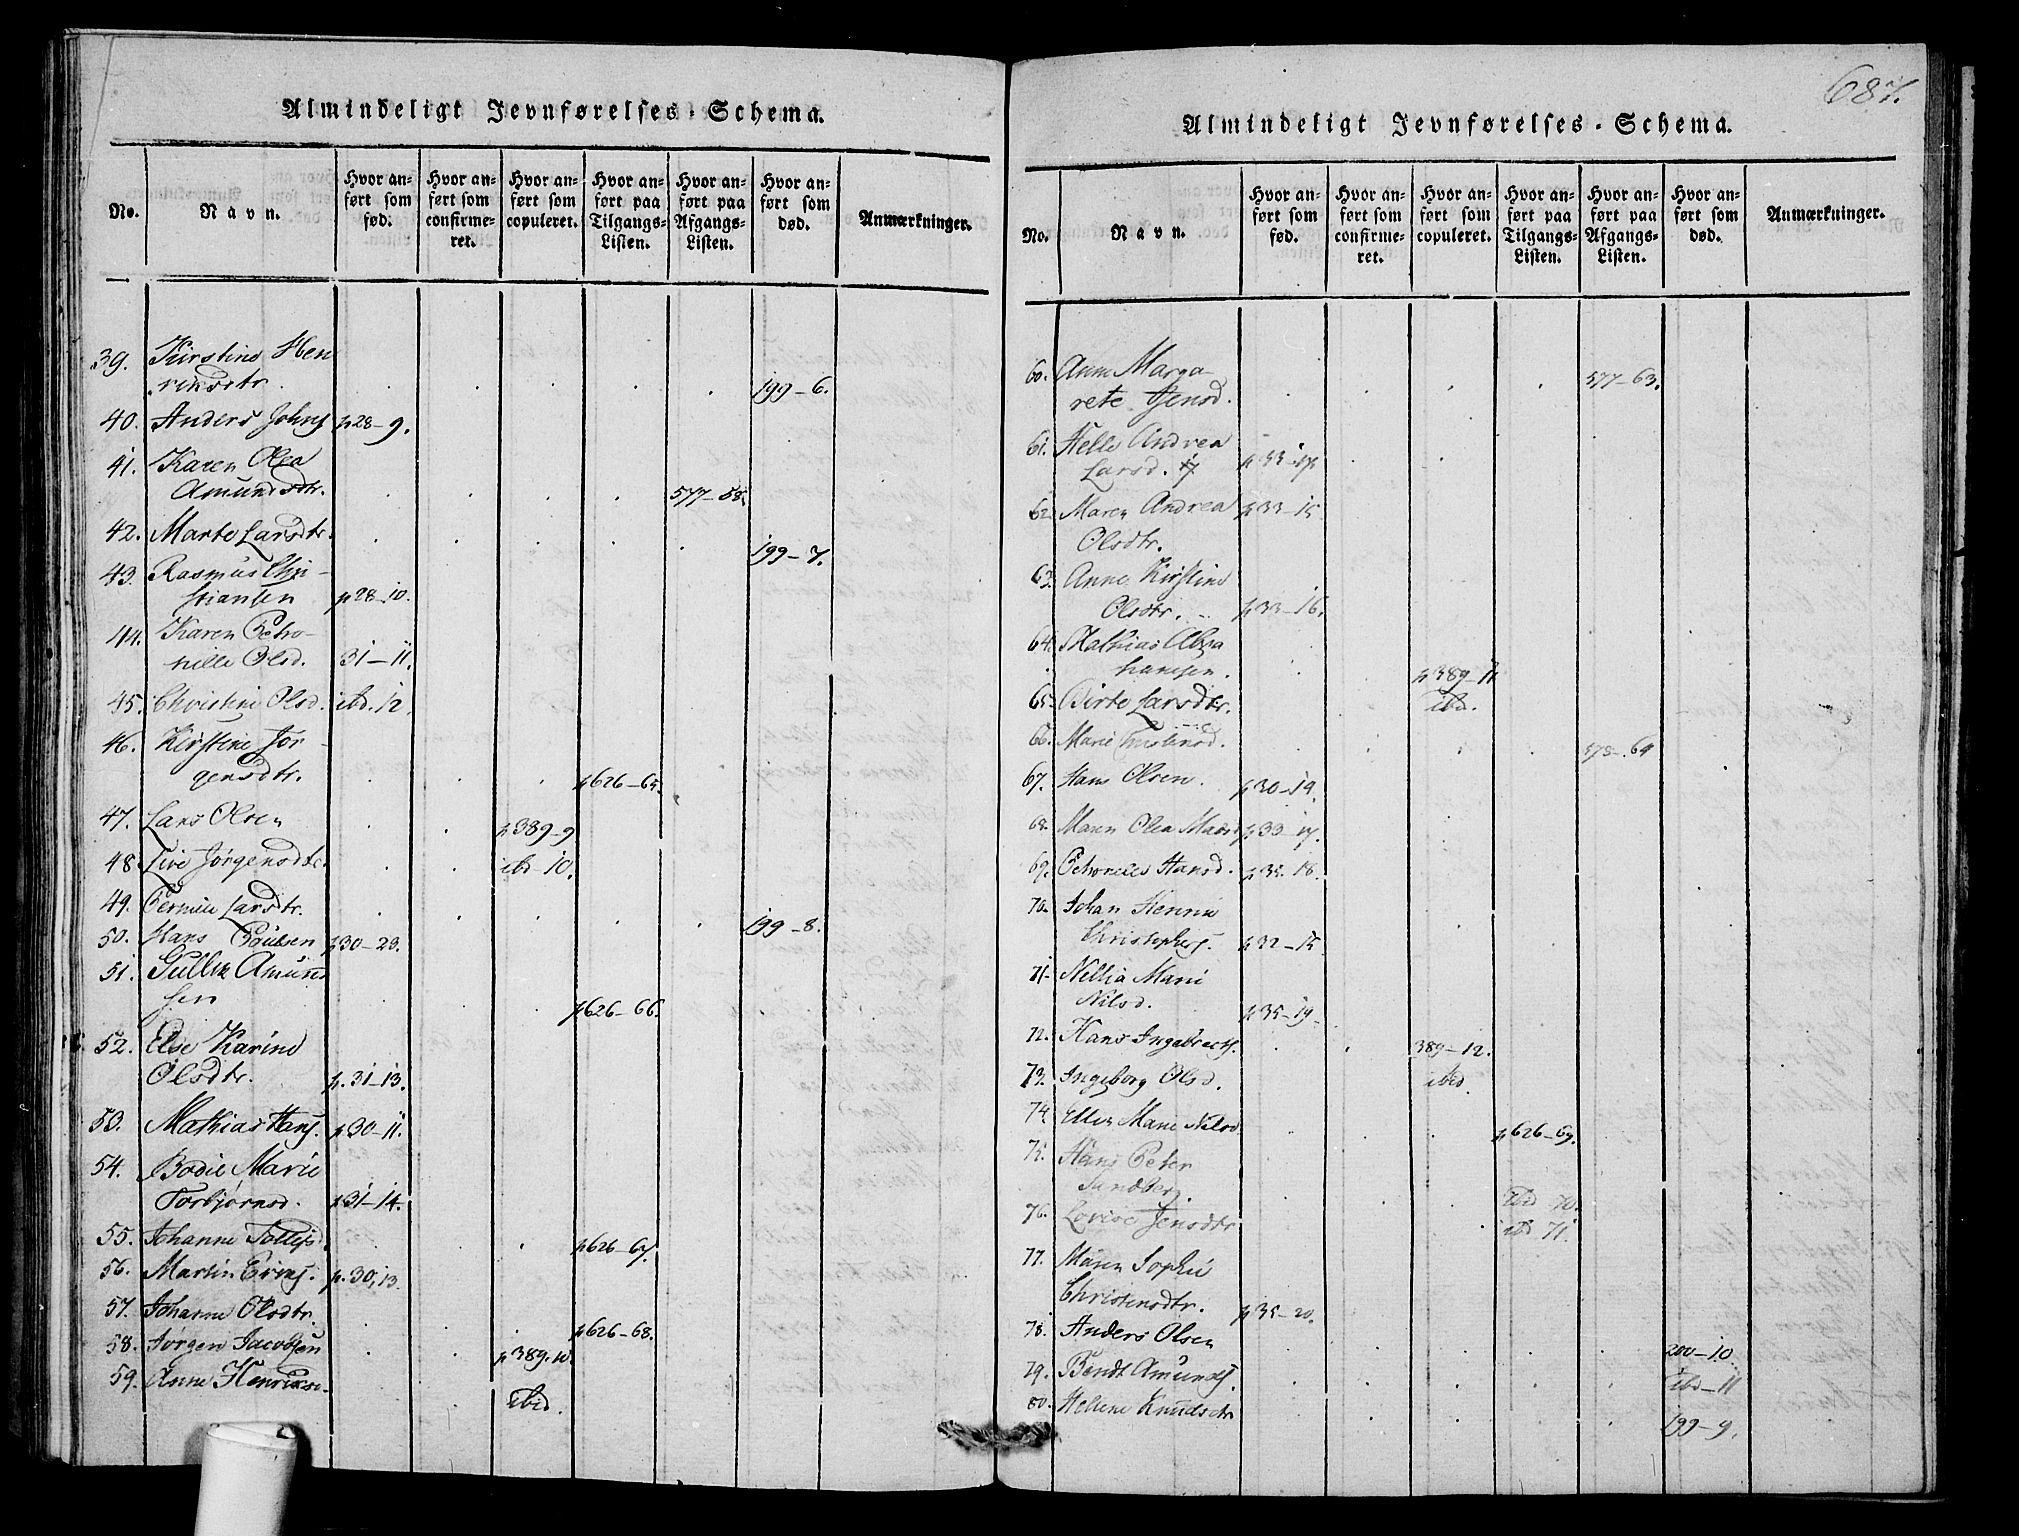 Almindeligt Jevnførelses-Schema.
No. Navn. Hvor anført som fød. Hvor anført som confirmeret. Hvor anført som copuleret. Hvor anført paa Tilgangs-Listen. Hvor anført paa Afgangs-Listen. Hvor anført som død. Anmærkninger.
39. Kirstine Hen
riksdtr. 199-6.
40. Anders Johns p28-9.
41. Karen Olea
Amundsdtr. 577-58.
42. Marte Larsdtr. 199-7.
43. Rasmus Chri-
stiansen p28-10.
44. Karen Petro-
nille Olsd. 31-11.
45. Christine Olsd. ibd. 12.
46. Kirstine Jör-
gensdtr. p626-65.
47. Lars Olsen p389-9
48 Live Jörgensdtr. ibd 10.
49. Pernille Larsdtr. 199-8.
50. Hans Poulsen p30-23.
51. Gullik Amund
sen p626-66.
52. Else Karine
Olsdtr. p.31-13.
53. Mathias Hans. p30-11.
54. Bodil Marie
Torbjörnsd. p31-14.
55. Johanne Tollefsd. p626-67.
56. Martin p.30,13
57. Johanne Olsdtr. p626-68.
58. Jorgen Jacobsen p389.10.
59. Anne Henriksd. ibid.
687.
Almindeligt Jevnførelses-Schema.
No. Navn. Hvor anført som fød. Hvor anført som confirmeret. Hvor anført som copuleret. Hvor anført paa Tilgangs-Listen. Hvor anført paa Afgangs-Listen. Hvor anført som død. Anmærkninger.
60. Anne Marga-
rete Jensd. 577-63.
61. Helle Andrea
Larsd. p33-14.
62. Maren Andrea p33-15.
Olsdtr.
63. Anne Kirstine
Olsdtr. p33-16.
64. Mathias Abra
hamsen. p389-11
65. Birte Larsdtr. ibd.
66. Marie 578-64
67. Hans Olsen. p30-14.
68. Maren Olea Madsd p33-17.
69. Petronelle Hansd. p35-18.
70. Johan
Christophers. p32-15
71. Nellia Marie
Nilsd. p35-19.
72. Hans Ingebrects. 389-12.
73. Ingeborg Olsd. ibid
74. Ellen Marie Nilsd p626-69.
75. Hans Peter
Sandberg. ibd 70.
76. Lovise Jensdtr ibd 71.
77. Maren Sophie
Christensdtr. p35-20.
78. Anders Olsen 200-10.
79. Bendt Amunds. ibd-11
80. Helene Knudsdtr 199-9.